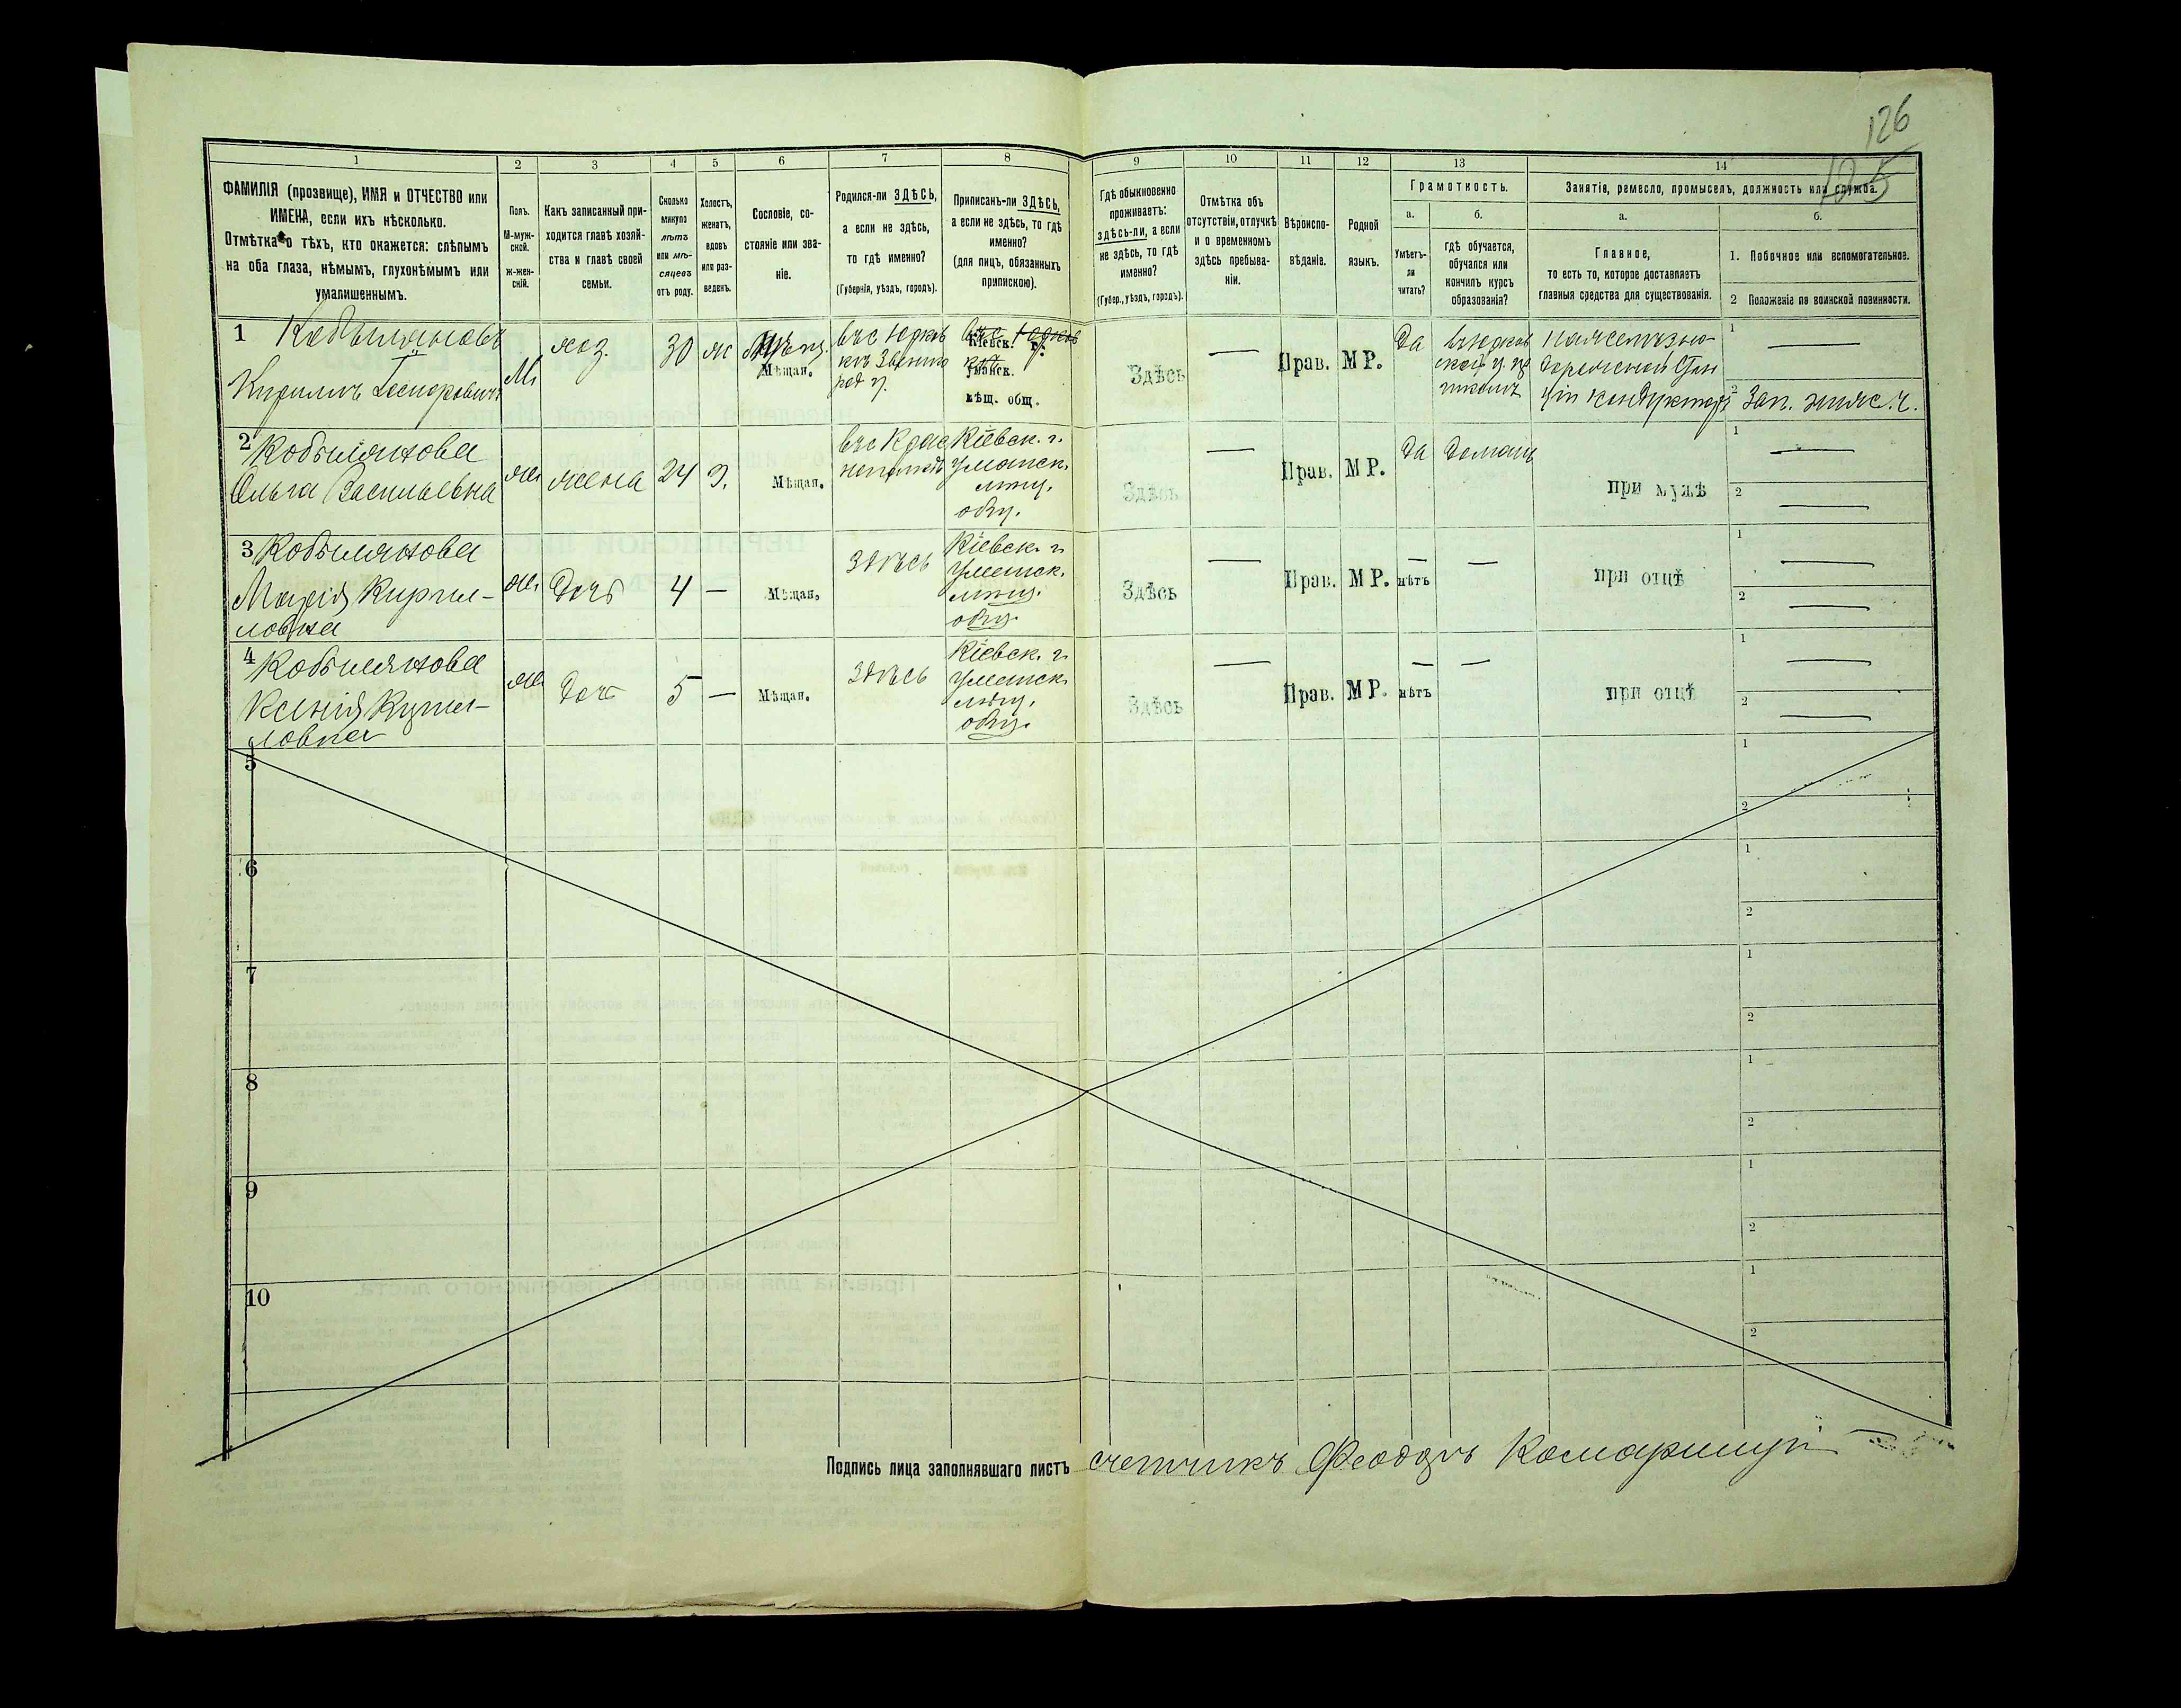 126
125
1 2 3 4 5 6 7 8 9 10 11 12 13 14
ФАМИЛІЯ (прозвище), ИМЯ и ОТЧЕСТВО или
ИМЕНА, если ихъ нѣсколько.
Отмѣтка о тѣхъ, кто окажется: слѣпымъ
на оба глаза, нѣмымъ, глухонѣмымъ или
умалишеннымъ.
Полъ.
М-муж-
ской.
ж-жен-
скій.
Какъ записанный при-
ходится главѣ хозяй-
ства и главѣ своей
семьи.
Сколько
минуло
лѣтъ
или мѣ-
сяцевъ
отъ роду.
Холостъ,
женатъ,
вдовъ
или раз-
веденъ.
Сословіе, со-
стояніе или зва-
ніе.
Родился-ли ЗДѢСЬ,
а если не здѣсь,
то гдѣ именно?
(Губернія, уѣздъ, городъ).
Приписанъ-ли ЗДѢСЬ,
а если не здѣсь, то гдѣ
именно?
(для лицъ, обязанныхъ
припискою).
Гдѣ обыкновенно
проживаетъ:
здѣсь-ли, а если
не здѣсь, то гдѣ
именно?
(Губер., уѣздъ, городъ).
Отмѣтка объ
отсутствіи, отлучкѣ
и о временномъ
здѣсь пребыва-
ніи.
Вѣроиспо-
вѣданіе.
Родной
языкъ.
Грамотность.
а.
Умѣетъ-
ли
читать?
б.
гдѣ обучается,
обучался или
кончилъ курсъ
образованія?
Занятія, ремесло, промыселъ, должность или служба.
а.
Главное,
то есть то, которое доставляетъ
главныя средства для существованія.
б.
1. Побочное или вспомогательное.
2 Положеніе по воинской повинности.
1
Кобыляновъ
Кирилъ
М
хоз.
30
ж
Мѣщан.
Кіевск. г.
Уманск.
мѣщ. общ.
Здѣсь
—
Прав.
МР.
Да
1
—
2 Зап.
2 Кобылянова
Ольга Васильевна
ж
жена
24
З.
Мѣщан.
Кіевск. г.
Уманск.
мѣщ.
общ.
Здѣсь
—
Прав.
МР.
Да
Домаш
при мужѣ
1
—
2
—
3 Кобылянова
Марія Кирил-
ловна
ж
дочь
4
—
Мѣщан.
здѣсь
Кіевск. г.
Уманск.
мѣщ.
общ.
Здѣсь
—
Прав.
МР.
—
нѣтъ
—
при отцѣ
1
—
2
—
4 Кобылянова
Ксенія Кирил-
ловна
ж
дочь
5
—
Мѣщан.
здѣсь
Кіевск. г.
Уманск.
мѣщ.
общ.
Здѣсь
—
Прав.
МР.
—
нѣтъ
—
при отцѣ
1
—
2
—
5
1
2
6
1
2
7
1
2
8
1
2
9
1
2
10
1
2
Подпись лица заполнявшаго листъ счетчикъ Феодоръ